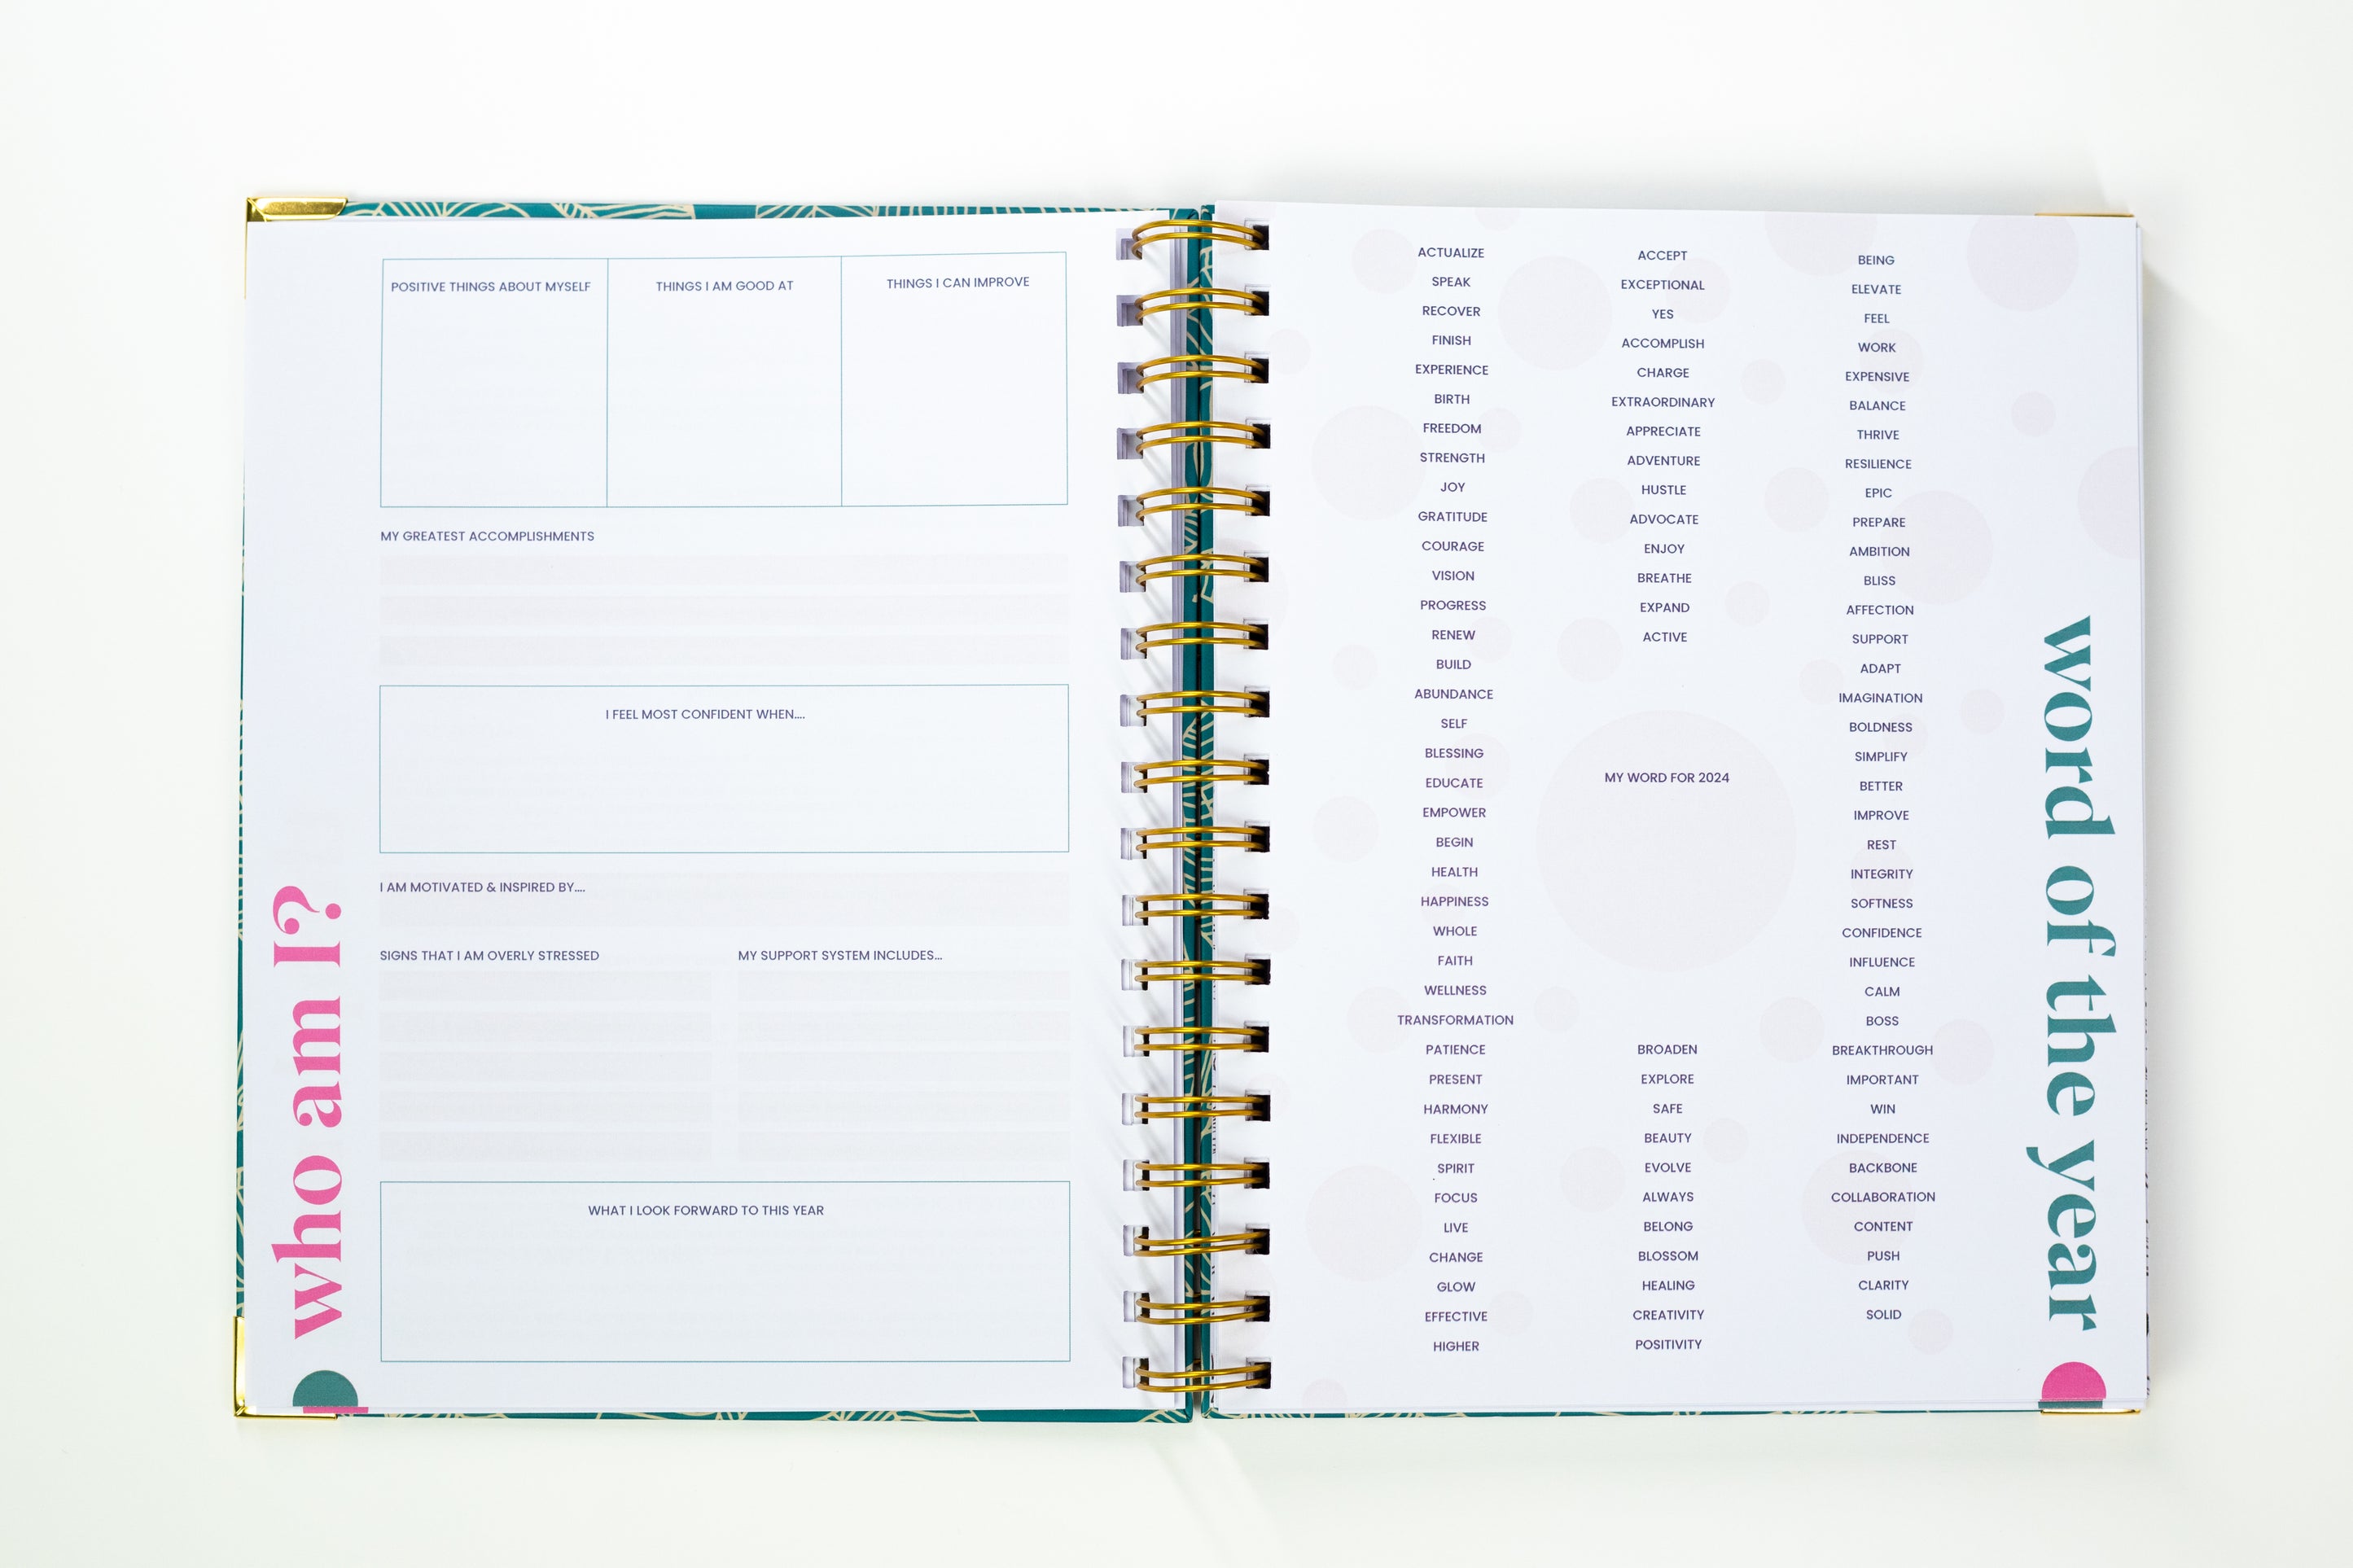 who am I?
POSITIVE THINGS ABOUT MYSELF
THINGS I AM GOOD AT
THINGS I CAN IMPROVE
MY GREATEST ACCOMPLISHMENTS
I FEEL MOST CONFIDENT WHEN....
I AM MOTIVATED & INSPIRED BY....
SIGNS THAT I AM OVERLY STRESSED
MY SUPPORT SYSTEM INCLUDES...
WHAT I LOOK FORWARD TO THIS YEAR
ACTUALIZE
SPEAK
RECOVER
FINISH
EXPERIENCE
BIRTH
FREEDOM
STRENGTH
JOY
GRATITUDE
COURAGE
VISION
PROGRESS
RENEW
BUILD
ABUNDANCE
SELF
BLESSING
EDUCATE
EMPOWER
BEGIN
HEALTH
HAPPINESS
WHOLE
FAITH
WELLNESS
TRANSFORMATION
PATIENCE
PRESENT
HARMONY
FLEXIBLE
SPIRIT
FOCUS
LIVE
CHANGE
GLOW
EFFECTIVE
HIGHER
ACCEPT
EXCEPTIONAL
YES
ACCOMPLISH
CHARGE
EXTRAORDINARY
APPRECIATE
ADVENTURE
HUSTLE
ADVOCATE
ENJOY
BREATHE
EXPAND
ACTIVE
MY WORD FOR 2024
BROADEN
EXPLORE
SAFE
BEAUTY
EVOLVE
ALWAYS
BELONG
BLOSSOM
HEALING
CREATIVITY
POSITIVITY
BEING
ELEVATE
FEEL
WORK
EXPENSIVE
BALANCE
THRIVE
RESILIENCE
EPIC
PREPARE
AMBITION
BLISS
AFFECTION
SUPPORT
ADAPT
IMAGINATION
BOLDNESS
SIMPLIFY
BETTER
IMPROVE
REST
INTEGRITY
SOFTNESS
CONFIDENCE
INFLUENCE
CALM
BOSS
BREAKTHROUGH
IMPORTANT
WIN
INDEPENDENCE
BACKBONE
COLLABORATION
CONTENT
PUSH
CLARITY
SOLID
word of the year